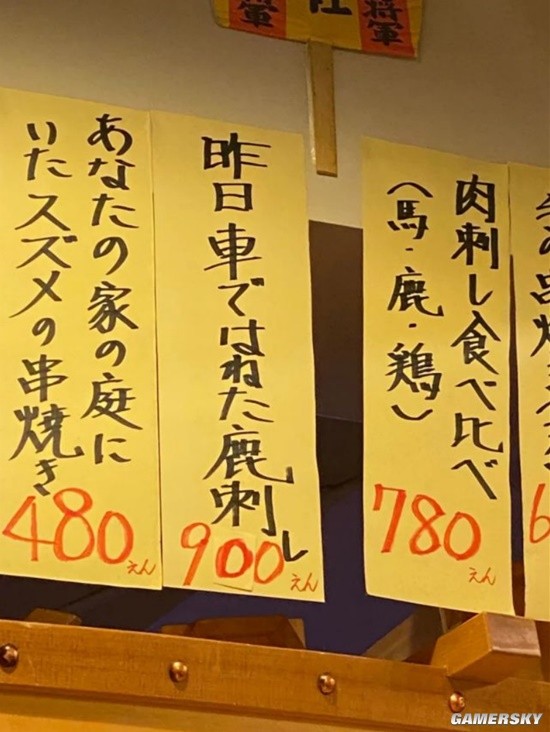 将軍
あなたの家の庭に
いたスズメの串焼き
480えん
昨日車ではねた鹿刺し
900えん
肉刺し食べ比べ
(馬・鹿・鶏)
780えん
6
GAMERSKY